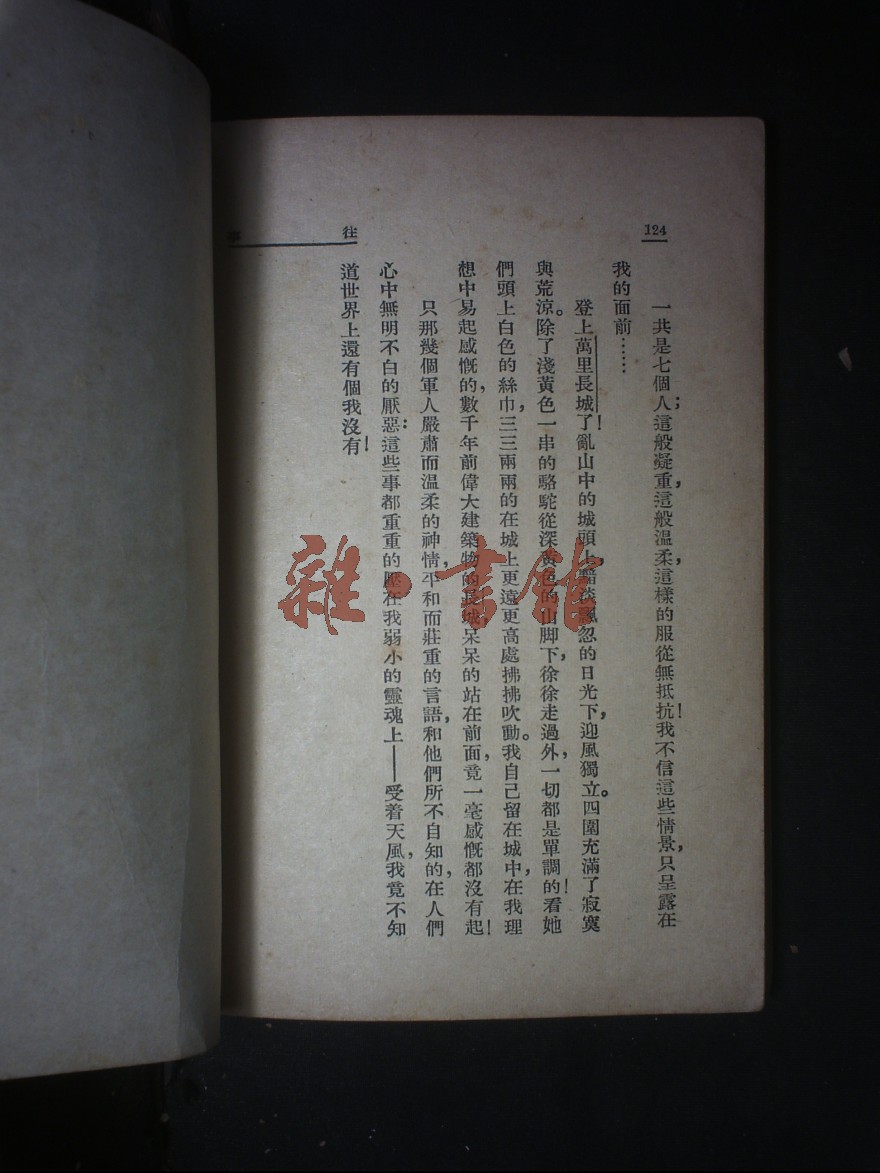 124
一共是七個人；這般凝重，這般溫柔，這樣的服從無抵抗！我不信這些情景，只呈露在
我的面前……
登上萬里長城了！亂山中的城頭上，黯淡飄忽的日光下，迎風獨立。四圍充滿了寂寞
與荒涼。除了淺黃色一串的駱駝從深黃色的山脚下，徐徐走過外，一切都是單調的！看她
們頭上白色的絲巾，三三兩兩的在城上更遠更高處拂拂吹動。我自己留在城中，在我理
想中易起感慨的，數千年前偉大建築物的長城，呆呆的站在前面，竟一毫感慨都沒有起！
只那幾個軍人嚴肅而溫柔的神情，平和而莊重的言語，和他們所不自知的，在人們
心中無明不白的厭惡：這些事都重重的壓在我弱小的靈魂上——受着天風，我竟不知
道世界上還有個我沒有！
往事
雜·書館